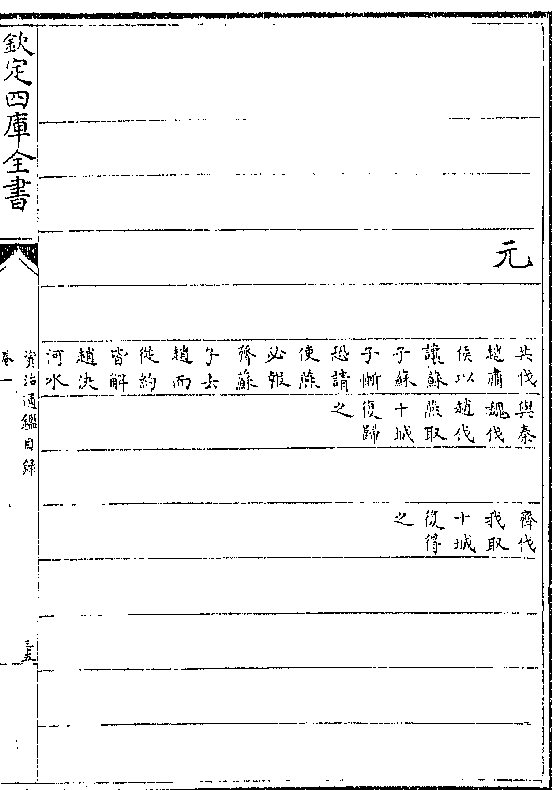 元
共伐
趙肅
侯以
讓蘇
子蘇
子慚
恐請
使燕
必報
齊蘇
子去
趙而
從約
皆解
趙決
河水
與秦
魏伐
趙伐
燕取
十城
復歸
之
齊伐
我取
十城
復得
之
欽定四庫全書
資治通鑑目録
卷一
三五